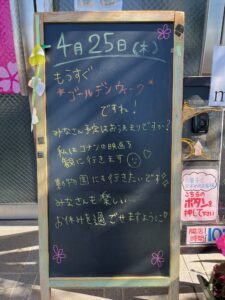 4月25日(木)
もうすぐ
*ゴールデンウィーク*
ですね!
みなさん予定はお決まりですか?
私はコナンの映画を
観に行きます
動物園にも行きたいです
みなさんも楽しい
お休みを過ごせますように
こちらの
ボタンを
押して下さい